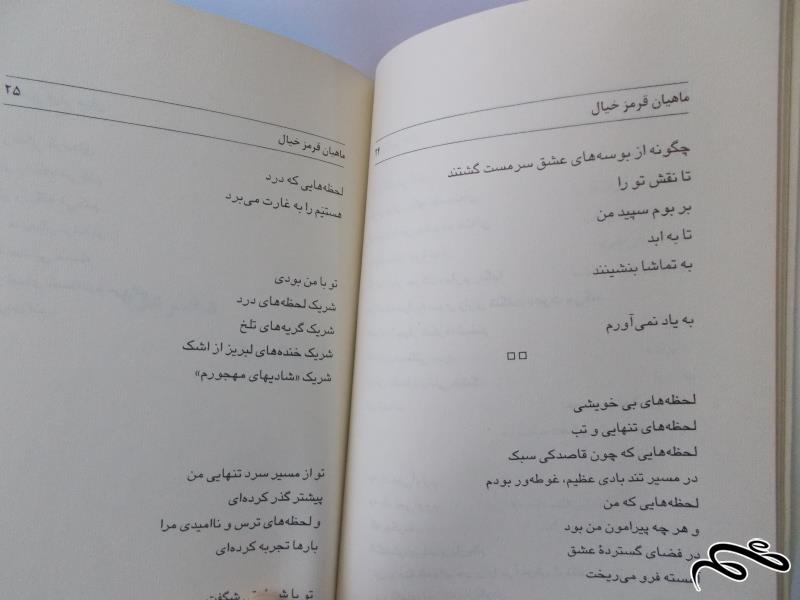 ماهیان قرمز خیال
۲۴
چگونه از بوسه‌های عشق سرمست گشتند
تا نقش تو را
بر بوم سپید من
تا به ابد
به تماشا بنشینند
به یاد نمی‌آورم
لحظه‌های بی خویشی
لحظه‌های تنهایی و تب
لحظه‌هایی که چون قاصدکی سبک
در مسیر تند بادی عظیم، غوطه‌ور بودم
لحظه‌هایی که من
و هر چه پیرامون من بود
در فضای گستردهٔ عشق
فرو می‌ریخت
۲۵
ماهیان قرمز خیال
لحظه‌هایی که درد
هستیم را به غارت می‌برد
تو با من بودی
شریک لحظه‌های درد
شریک گریه‌های تلخ
شریک خنده‌های لبریز از اشک
شریک «شادیهای مهجورم»
تو از مسیر سرد تنهایی من
پیشتر گذر کرده‌ای
و لحظه‌های ترس و ناامیدی مرا
بارها تجربه کرده‌ای
تو با